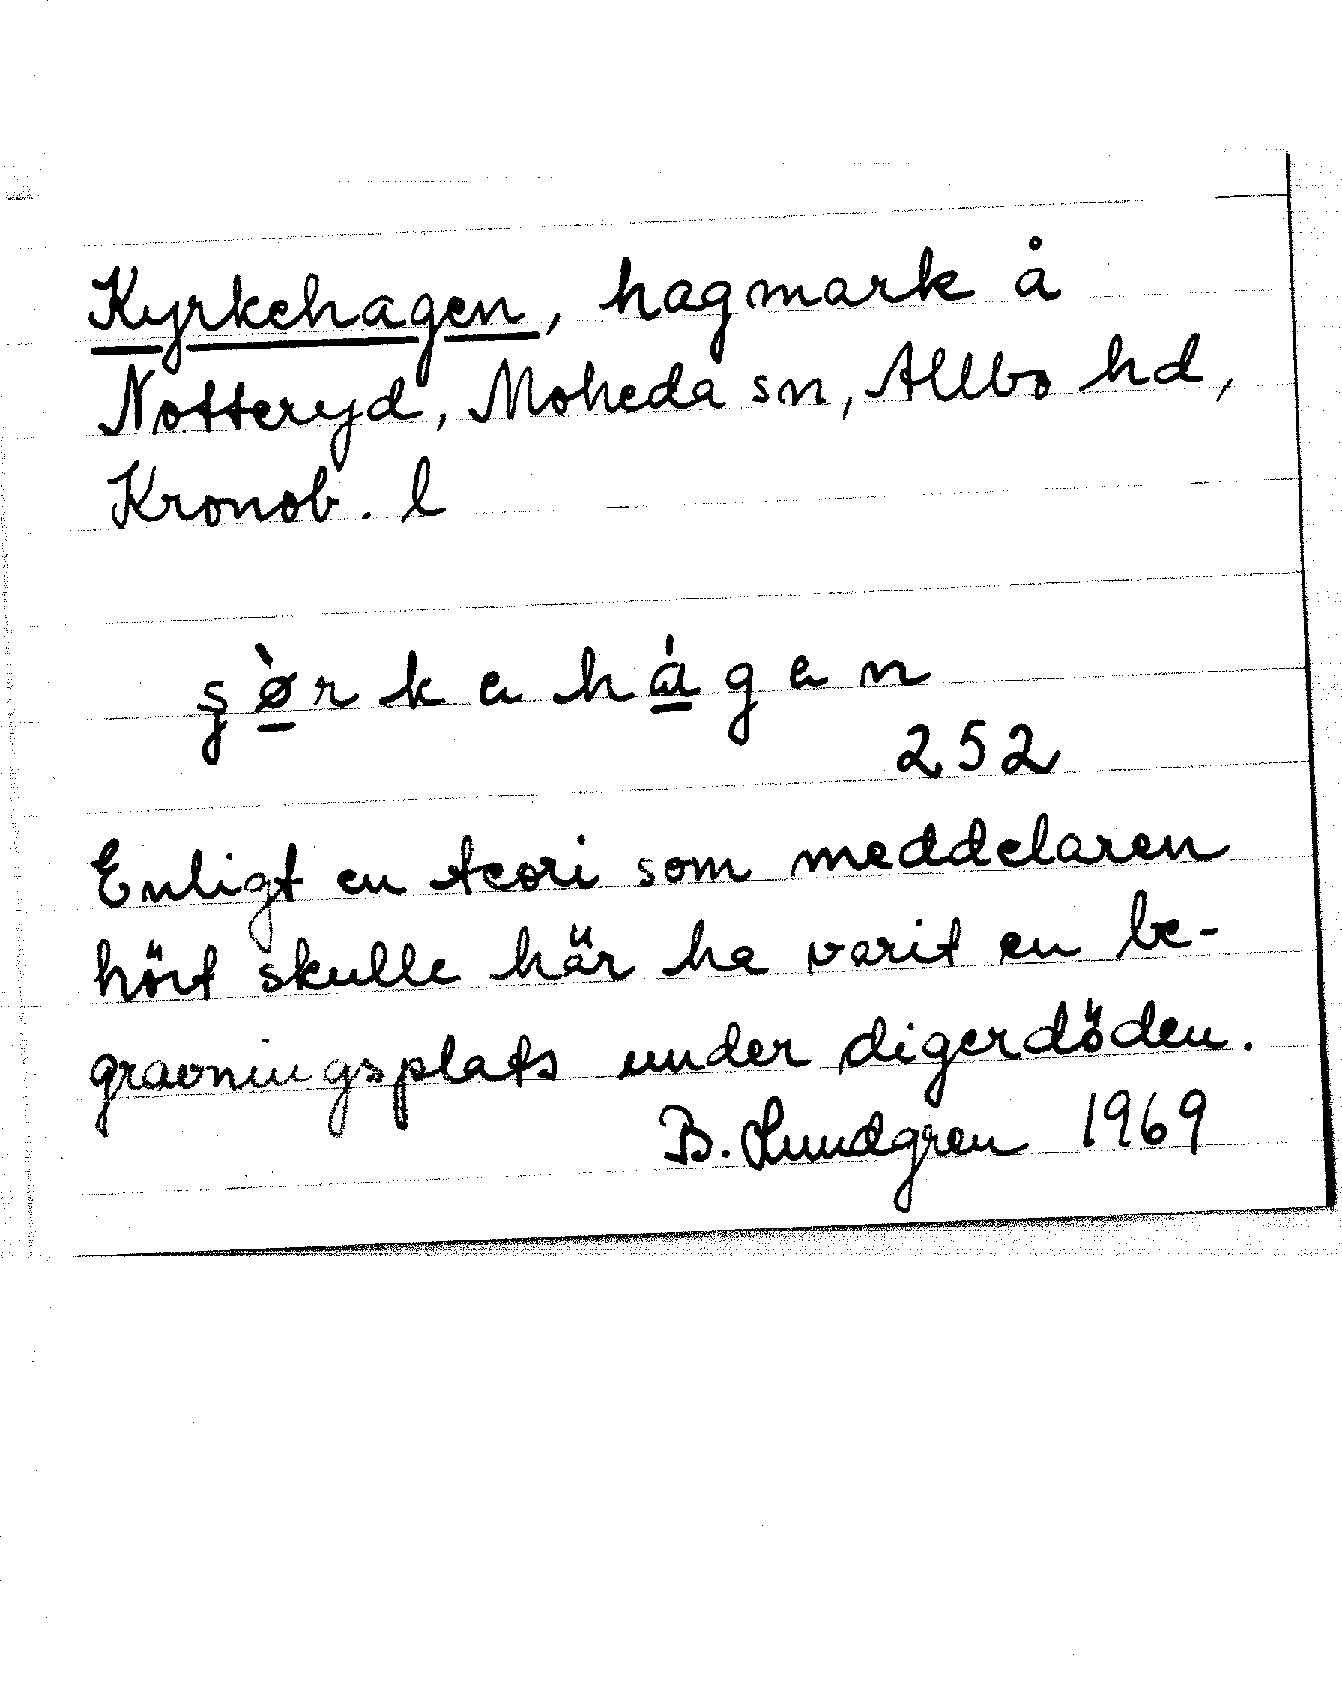 Kyrkehagen, hagmark å
Notteryd, Moheda sn, Allbo hd,
Kronob. l
ş ø̱̀ r k e h á̱ g e n
252
Enligt en teori som meddelaren
hört skulle här ha varit en be-
gravningsplats under digerdöden.
B. Lundgren 1969